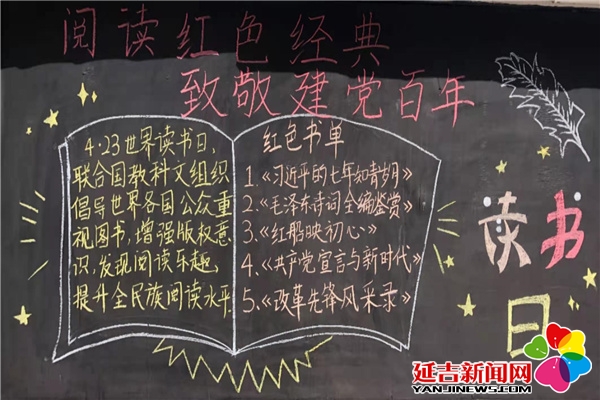 阅读红色经典
致敬建党百年
4·23世界读书日，
联合国教科文组织
倡导世界各国公众重
视图书，增强版权意
识，发现阅读乐趣，
提升全民族阅读水平
红色书单
1.《习近平的七年知青岁月》
2.《毛泽东诗词全编鉴赏》
3.《红船映初心》
4.《共产党宣言与新时代》
5.《改革先锋风采录》
读书
日
延吉新闻网
YANJINEWS.COM